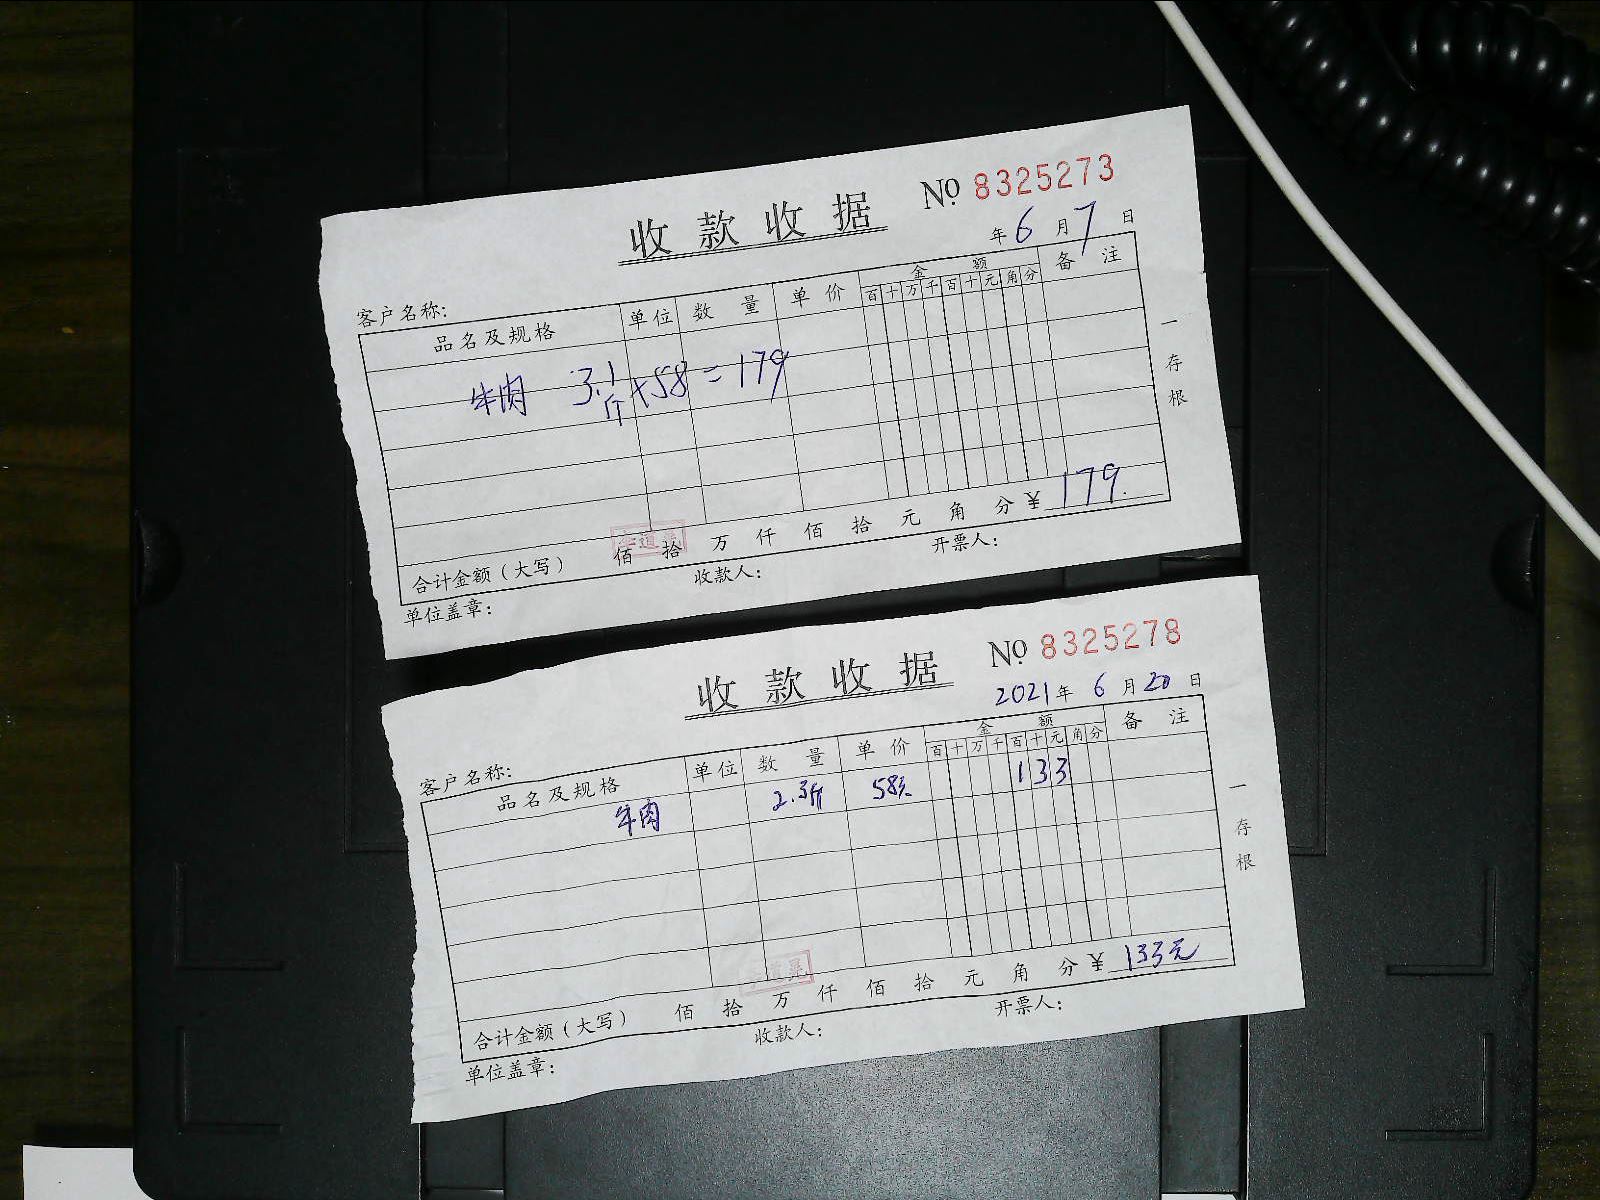 收款收据 № 8325273
年 6 月 7 日
客户名称:
品名及规格 单位 数量 单价 金额 备注
百 十 万 千 百 十 元 角 分
牛肉 3.1斤×58=179
一存根
合计金额(大写) 佰 拾 万 仟 佰 拾 元 角 分 ¥ 179.
单位盖章: 收款人: 开票人:
收款收据 № 8325278
2021 年 6 月 20 日
客户名称:
品名及规格 单位 数量 单价 金额 备注
百 十 万 千 百 十 元 角 分
牛肉 2.3斤 58元 1 3 3
一存根
合计金额(大写) 佰 拾 万 仟 佰 拾 元 角 分 ¥ 133元
单位盖章: 收款人: 开票人: